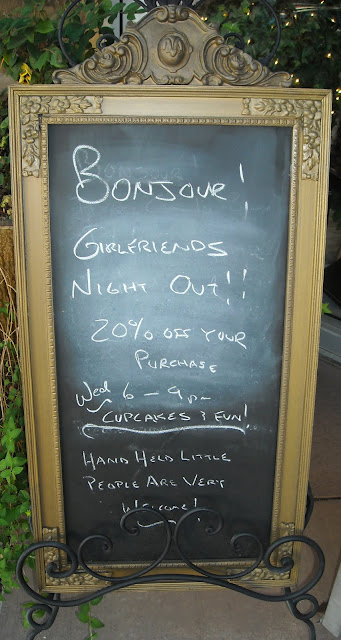 BONJOUR!
GIRLFRIENDS
NIGHT OUT!!
20% OFF YOUR
PURCHASE
Wed 6 - 9 pm
CUPCAKES & FUN!
HAND HELD LITTLE
PEOPLE ARE VERY
WELCOME!